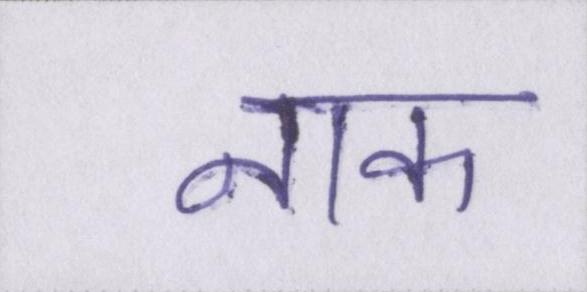 नाक